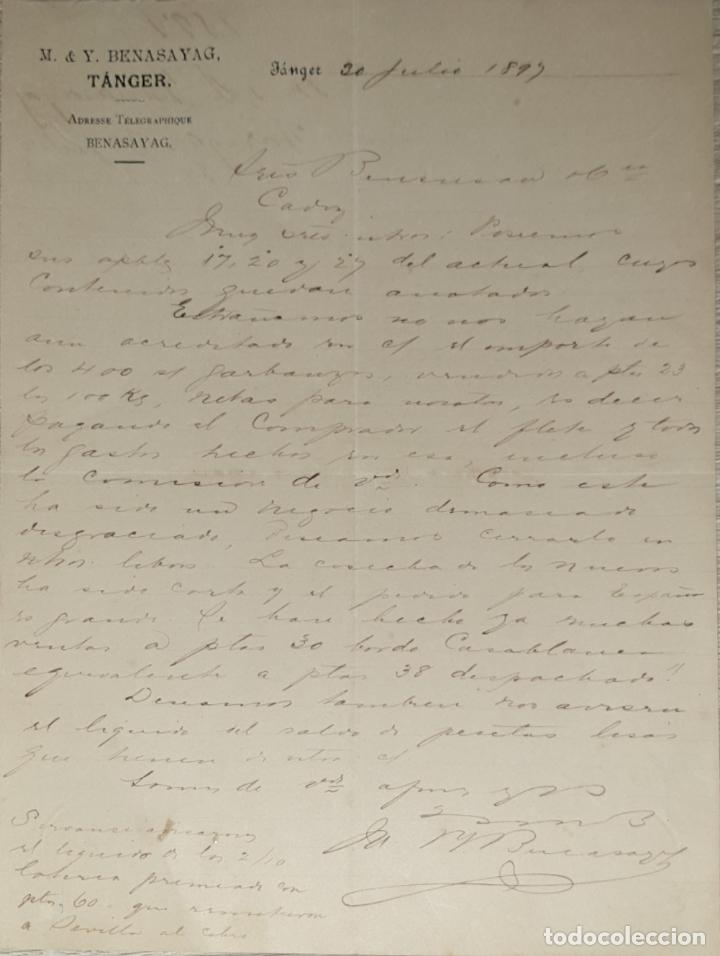 M. & Y. BENASAYAG,
TÁNGER.
ADRESSE TÉLEGRAPHIQUE
BENASAYAG.
Tánger 20 Julio 1897
Sres Bensusan
Cadiz
Muy sres ntros: Poseemos
sus aptbles 17, 20 y 27 del actual, cuyos
contenidos quedan anotados
Estrañamos no nos hayan
aun acreditado en c/ el importe de
los 400 s/ garbanzos, vendidos a ptas 23
los 100 Kg, netas para nosotros, es decir
pagando el comprador el flete y todos
los gastos hechos en esa incluso
la comision de Vds. Como este
ha sido un negocio demasiado
desgraciado, deseamos cerrarlo en
ntros libros. La cosecha de los nuevos
ha sido corta y el pedido para España
es grande. Se hase hecho ya muchas
ventas a ptas 30 bordo Casablanca
equivalente a ptas 38 despachado!!
Deseamos tambien nos avisen
el liquido del saldo de pesetas
que tienen de ntra c/
Somos de Vds afmos
M. Y. Benasayag
el liquido de los 2/10
loteria premiado con
ptas. 60. que remitieron
a Sevilla al cobro
todocoleccion.net